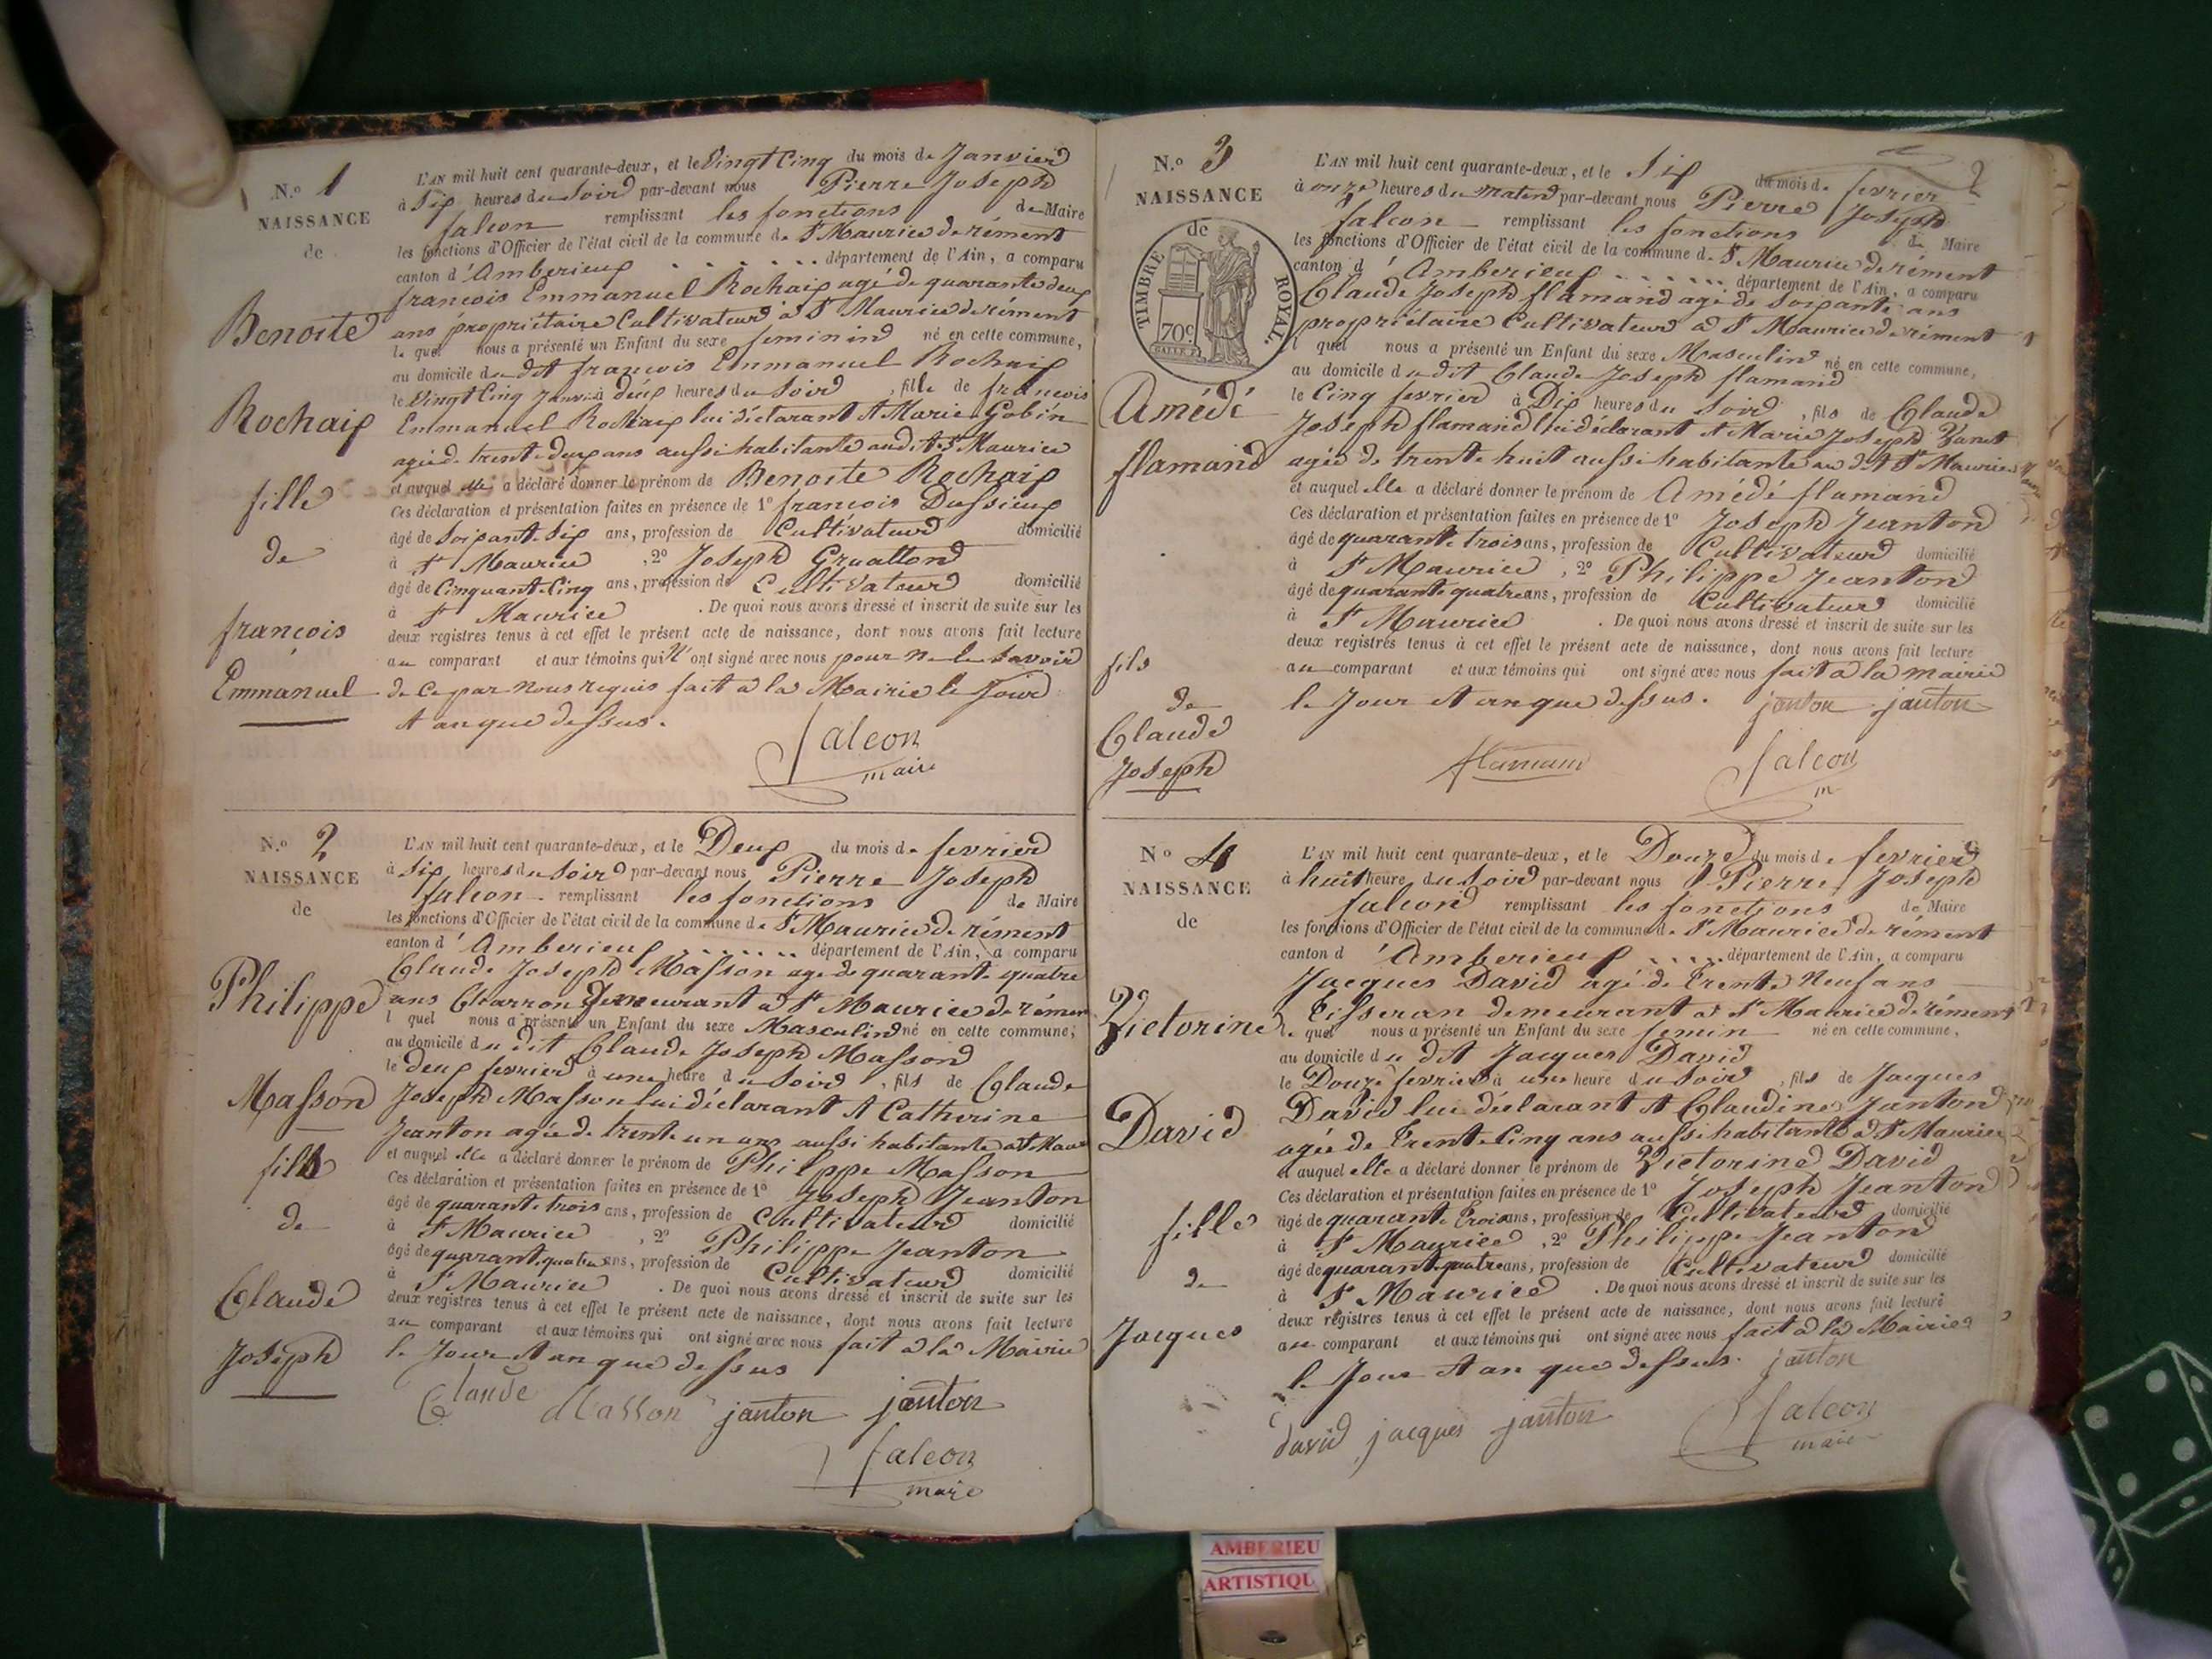 N.° 1
NAISSANCE
de
Benoite
Rochaix
fille
de
françois
Emmanuel
L'AN mil huit cent quarante-deux, et le Vingt Cinq du mois de Janvier
à Six heures du Soir par-devant nous Pierre Joseph
falcon remplissant les fonctions de Maire
les fonctions d'Officier de l'état civil de la commune de St Maurice de rément
canton d'Amberieux département de l'Ain, a comparu
françois Emmanuel Rochaix agé de quarante deux
ans propriétaire Cultivateur à St Maurice de rément
le quel nous a présenté un Enfant du sexe feminin né en cette commune,
au domicile du dit françois Emmanuel Rochaix
le Vingt Cinq Janvier à deux heures du Soir, fille de françois
Emmanuel Rochaix lui déclarant et Marie Gobin
agée de trente deux ans aussi habitante audit St Maurice
et auquel elle a déclaré donner le prénom de Benoite Rochaix
Ces déclaration et présentation faites en présence de 1° françois Dussieux
âgé de Soixante Six ans, profession de Cultivateur domicilié
à St Maurice, 2° Joseph Gruatton
âgé de Cinquante Cinq ans, profession de Cultivateur domicilié
à St Maurice. De quoi nous avons dressé et inscrit de suite sur les
deux registres tenus à cet effet le présent acte de naissance, dont nous avons fait lecture
au comparant et aux témoins qui N'ont signé avec nous pour ne le Savoir
de ce par nous requis fait à la Mairie le Jour
et an que dessus.
falcon
maire
N.° 2
NAISSANCE
de
Philippe
Masson
fils
de
Claude
Joseph
L'AN mil huit cent quarante-deux, et le Deux du mois de fevrier
à Six heures du Soir par-devant nous Pierre Joseph
falcon remplissant les fonctions de Maire
les fonctions d'Officier de l'état civil de la commune de St Maurice de rément
canton d'Amberieux département de l'Ain, a comparu
Claude Joseph Masson age de quarante quatre
ans Charron Demeurant à St Maurice de rémen
l quel nous a présenté un Enfant du sexe Masculin né en cette commune,
au domicile du dit Claude Joseph Masson
le deux fevrier à une heure du Soir, fils de Claude
Joseph Masson lui déclarant et Catherine
Jeanton agée de trente un ans aussi habitante à St Maur
et auquel elle a déclaré donner le prénom de Philippe Masson
Ces déclaration et présentation faites en présence de 1° Joseph Jeanton
âgé de quarante trois ans, profession de Cultivateur domicilié
à St Maurice, 2° Philippe Jeanton
âgé de quarante quatre ans, profession de Cultivateur domicilié
à St Maurice. De quoi nous avons dressé et inscrit de suite sur les
deux registres tenus à cet effet le présent acte de naissance, dont nous avons fait lecture
au comparant et aux témoins qui ont signé avec nous fait à la Mairie
le Jour et an que dessus
Claude Masson janton janton
falcon
maire
N.° 3
NAISSANCE
de
TIMBRE ROYAL.
70c.
Amédé
flamand
fils
de
Claude
Joseph
L'AN mil huit cent quarante-deux, et le Six du mois de fevrier
à onze heures du matin par-devant nous Pierre Joseph
falcon remplissant les fonctions de Maire
les fonctions d'Officier de l'état civil de la commune de St Maurice de rément
canton d'Amberieux département de l'Ain, a comparu
Claude Joseph flamand agé de Soixante ans
propriétaire Cultivateur à St Maurice de rément
l quel nous a présenté un Enfant du sexe Masculin né en cette commune,
au domicile du dit Claude Joseph flamand
le Cinq fevrier à Dix heures du Soir, fils de Claude
Joseph flamand lui déclarant et Marie Joseph
agée de trente huit aussi habitante au dit St Maurice
et auquel elle a déclaré donner le prénom de Amédé flamand
Ces déclaration et présentation faites en présence de 1° Joseph Jeanton
âgé de quarante trois ans, profession de Cultivateur domicilié
à St Maurice, 2° Philippe Jeanton
âgé de quarante quatre ans, profession de Cultivateur domicilié
à St Maurice. De quoi nous avons dressé et inscrit de suite sur les
deux registres tenus à cet effet le présent acte de naissance, dont nous avons fait lecture
au comparant et aux témoins qui ont signé avec nous fait à la mairie
le Jour et an que dessus. janton janton
flamand falcon
m
N° 4
NAISSANCE
de
Victorine
David
fille
de
Jacques
L'AN mil huit cent quarante-deux, et le Douze du mois de fevrier
à huit heure du Soir par-devant nous Pierre Joseph
falcon remplissant les fonctions de Maire
les fonctions d'Officier de l'état civil de la commune de St Maurice de rément
canton d'Amberieux département de l'Ain, a comparu
Jacques David agé de Trente Neuf ans
Tisseran demeurant à St Maurice de rément
le quel nous a présenté un Enfant du sexe femin né en cette commune,
au domicile du dit Jacques David
le Douze fevrier à une heure du Soir, fils de Jacques
David lui déclarant et Claudine Janton
agée de Trente Cinq ans aussi habitante à St Maurice
et auquel elle a déclaré donner le prénom de Victorine David
Ces déclaration et présentation faites en présence de 1° Joseph Jeanton
âgé de quarante Trois ans, profession de Cultivateur domicilié
à St Maurice, 2° Philippe Jeanton
âgé de quarante quatre ans, profession de Cultivateur domicilié
à St Maurice. De quoi nous avons dressé et inscrit de suite sur les
deux registres tenus à cet effet le présent acte de naissance, dont nous avons fait lecture
au comparant et aux témoins qui ont signé avec nous fait à la Mairie
le Jour et an que dessus. janton
david jacques janton falcon
maire
AMBERIEU
ARTISTIQU